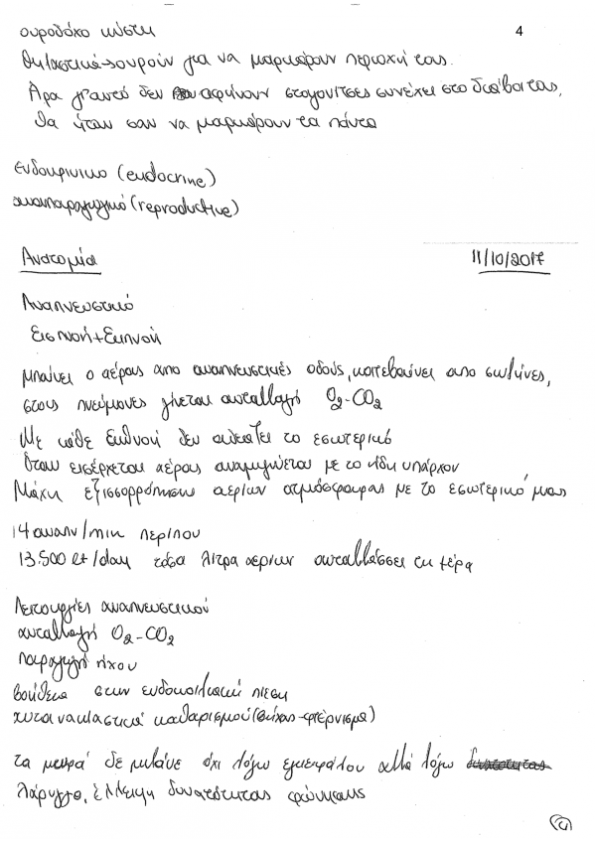 ουροδόχο κύστη
4
Θηλαστικά→ουρούν για να μαρκάρουν περιοχή τους.
Άρα γι'αυτό δεν αφήνουν σταγονίτσες συνέχεια στο διάβα τους,
θα ήταν σαν να μαρκάρουν τα πάντα
ενδοκρινικο (endocrine)
αναπαραγωγικό (reproductive)
Ανατομία
11/10/2017
Αναπνευστικό
Εισπνοή+Εκπνοή
Μπαίνει ο αέρας απο αναπνευστικές οδούς, κατεβαίνει απο σωλήνες,
στους πνεύμονες γίνεται ανταλλαγή O2-CO2
Με κάθε εκπνοή δεν αδειάζει το εσωτερικό
Όταν εισέρχεται αέρας αναμιγνύεται με το ήδη υπάρχον
Μάχη εξισσορρόπησης αερίων ατμόσφαιρας με το εσωτερικό μας
14 αναπν/min περίπου
13.500 lt/day τόσα λίτρα αερίων ανταλλάσσει τη μέρα
Λειτουργίες αναπνευστικού
ανταλλαγή O2-CO2
παραγωγή ήχου
βοήθεια στην ενδοκοιλιακή πίεση
αντανακλαστικά καθαρισμού (βήχας-φτέρνισμα)
τα μωρά δε μιλάνε όχι λόγω εγκεφάλου αλλά λόγω
λάρυγγα, έλλειψη δυνατότητας φώνησης